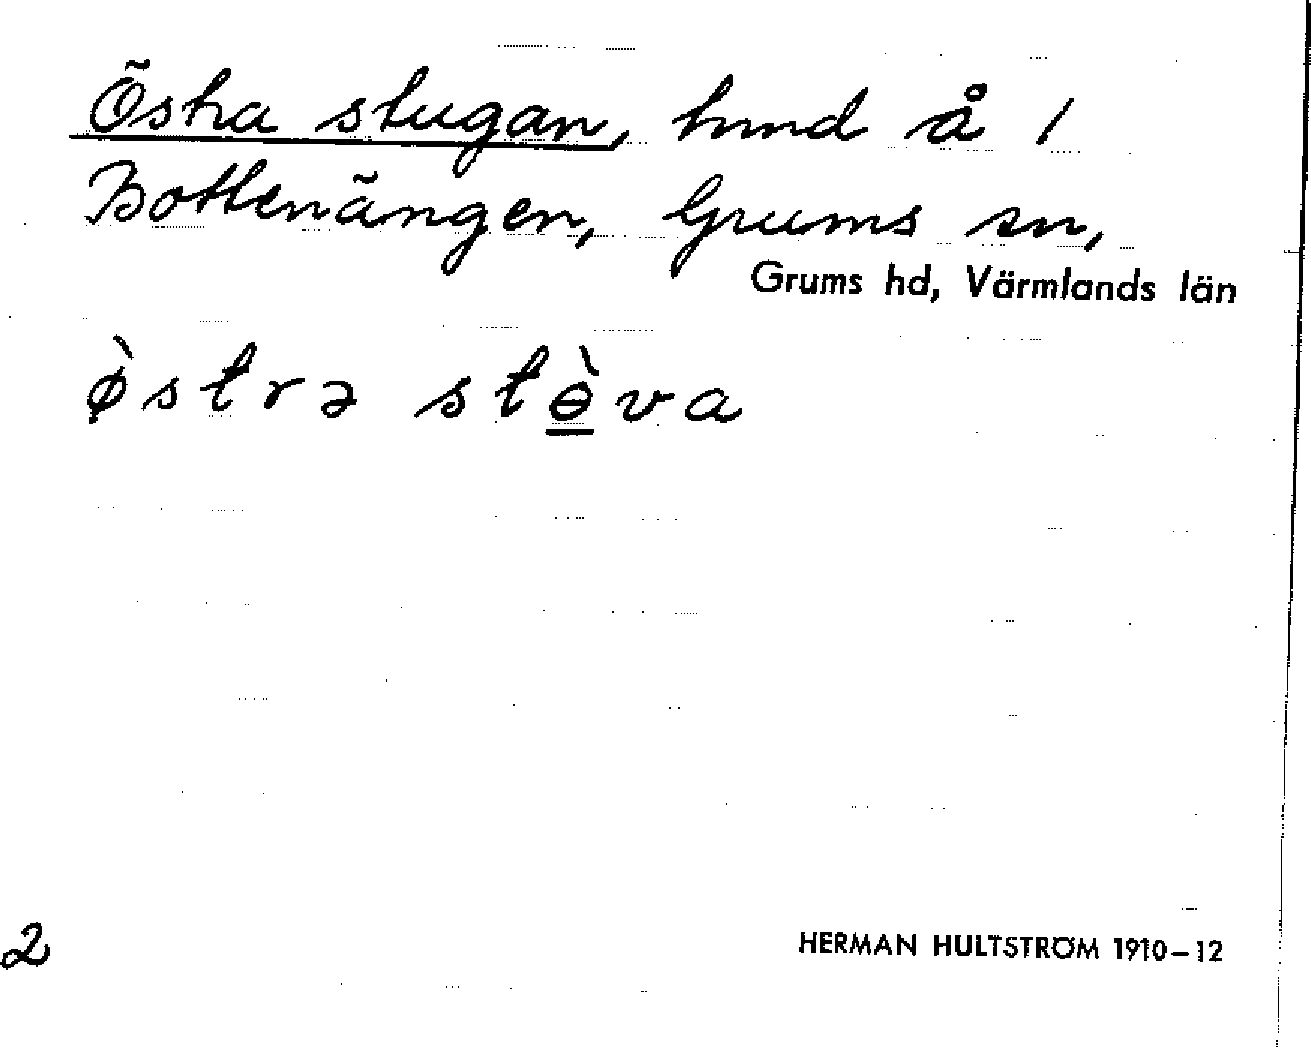 Östra stugan, hmd å 1
Bottenängen, Grums sn,
Grums hd, Värmlands län
ø̀strə stɵ̱̀va
2
HERMAN HULTSTRÖM 1910–12